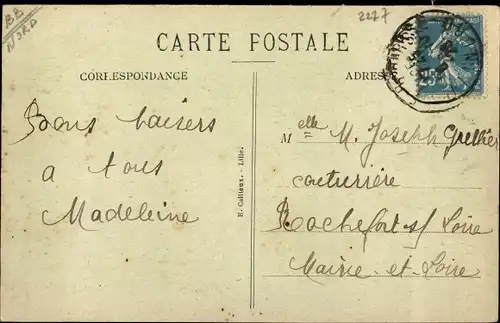 BB
NORD
2277
CARTE POSTALE
CORRESPONDANCE
ADRES
Bons baisers
a tous
Madeleine
E. Cailteux. - Lille.
Melle M. Joseph Grellier
couturrière
Rochefort s/ Loire
Maine-et-Loire